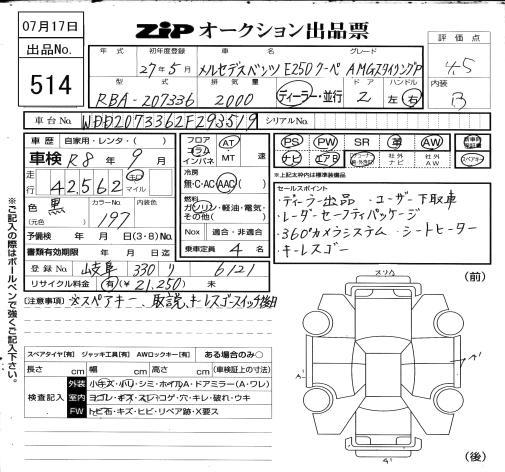 07月17日
ZIP オークション出品票
出品No.
514
年式 初年度登録 車名 グレード
27年5月 メルセデスベンツ E250クーペ AMGスタイリングP
型式 排気量 ドア ハンドル
RBA-207336 2000 ディーラー・並行 2 左 右
評価点
4.5
内装
B
車台No. WDD2073362F293519 シリアルNo.
車歴 自家用・レンタ・( )
車検 R8年9月
走行 42,562 キロ マイル
色 黒 カラーNo. 197 内装色
(元色)
予備検 年 月 日(3・6)No.
書類有効期限 年 月 日迄
登録No. 岐阜 330 り 6121
リサイクル料金 有(¥21,250) 未
フロア コラム インパネ AT MT 速
冷房 無・C・AC AAC
燃料 ガソリン・軽油・電気・その他( )
Nox 適合・非適合
乗車定員 4名
PS PW SR 革 AW
ナビ エアB 社外ナビ 社外AW
スペアキー
※上記太枠内は標準装備品
セールスポイント
・ディーラー出品 ・ユーザー下取車
・レーダーセーフティパッケージ
・360°カメラシステム ・シートヒーター
・キーレスゴー
[注意事項] ※スペアキー、取説、キーレスゴースイッチ後日
※ご記入の際はボールペンで強くご記入下さい。
スペアタイヤ[有] ジャッキ工具[有] AWロックキー[有] ある場合のみ○
長さ cm 幅 cm 高さ cm (車検証上の寸法)
検査記入
外装 小キズ・小ハリ・シミ・ホイルA・ドアミラー(A・ワレ)
室内 ヨゴレ・キズ・スレ・コゲ・穴・キレ・破れ・ウキ
FW トビ石・キズ・ヒビ・リペア跡・X要ス
(前)
(後)